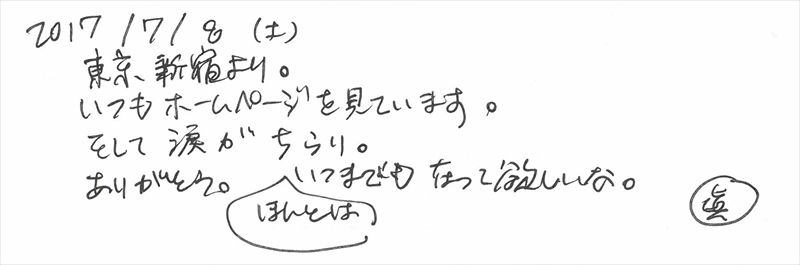 2017/7/8 (土)
東京、新宿より。
いつもホームページを見ています。
そして涙がちらり。
ありがとう。いつまでも在って欲しいな。
ほんとは
眞